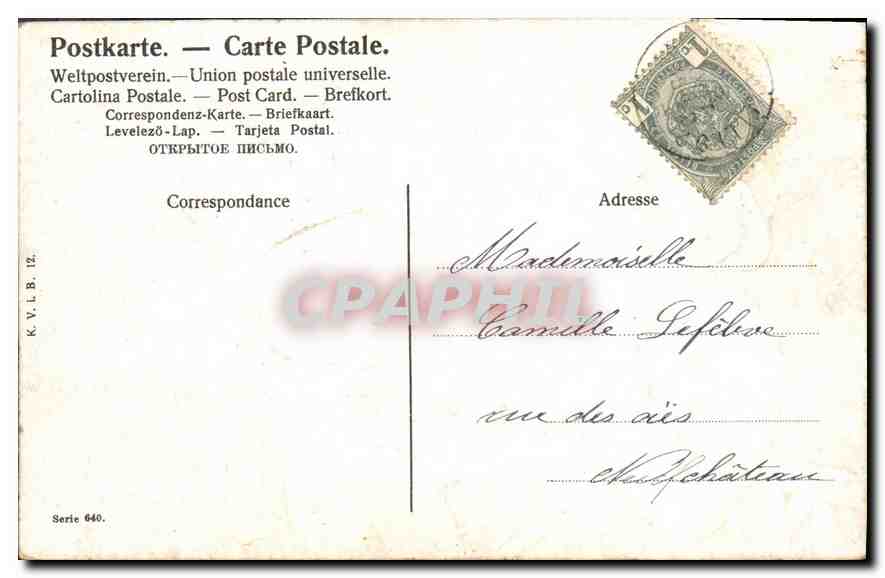 Postkarte. — Carte Postale.
Weltpostverein.—Union postale universelle.
Cartolina Postale. — Post Card. — Brefkort.
Correspondenz-Karte. — Briefkaart.
Levelezö-Lap. — Tarjeta Postal.
ОТКРЫТОЕ ПИСЬМО.
Correspondance
Adresse
Mademoiselle
Camille Lefèbve
rue des
Neufchâteau
CPAPHIL
K. V. i. B. 12.
Serie 640.
1
1